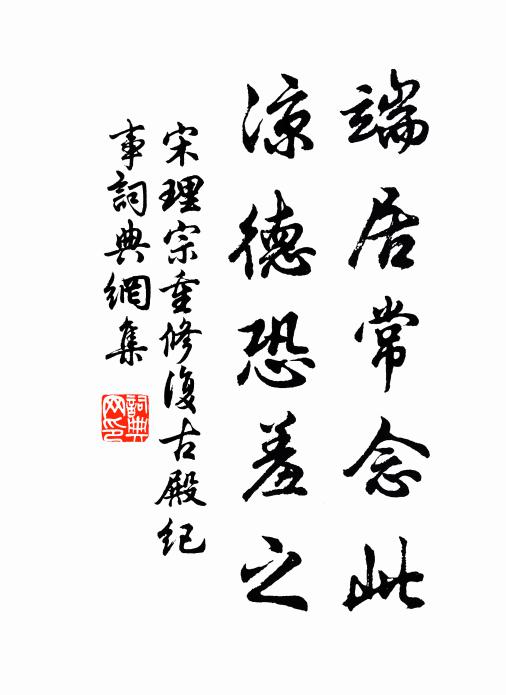 端居常念此
凉德恐羞之
宋理宗重修復古殿紀
事詞典網集
詞典
网印